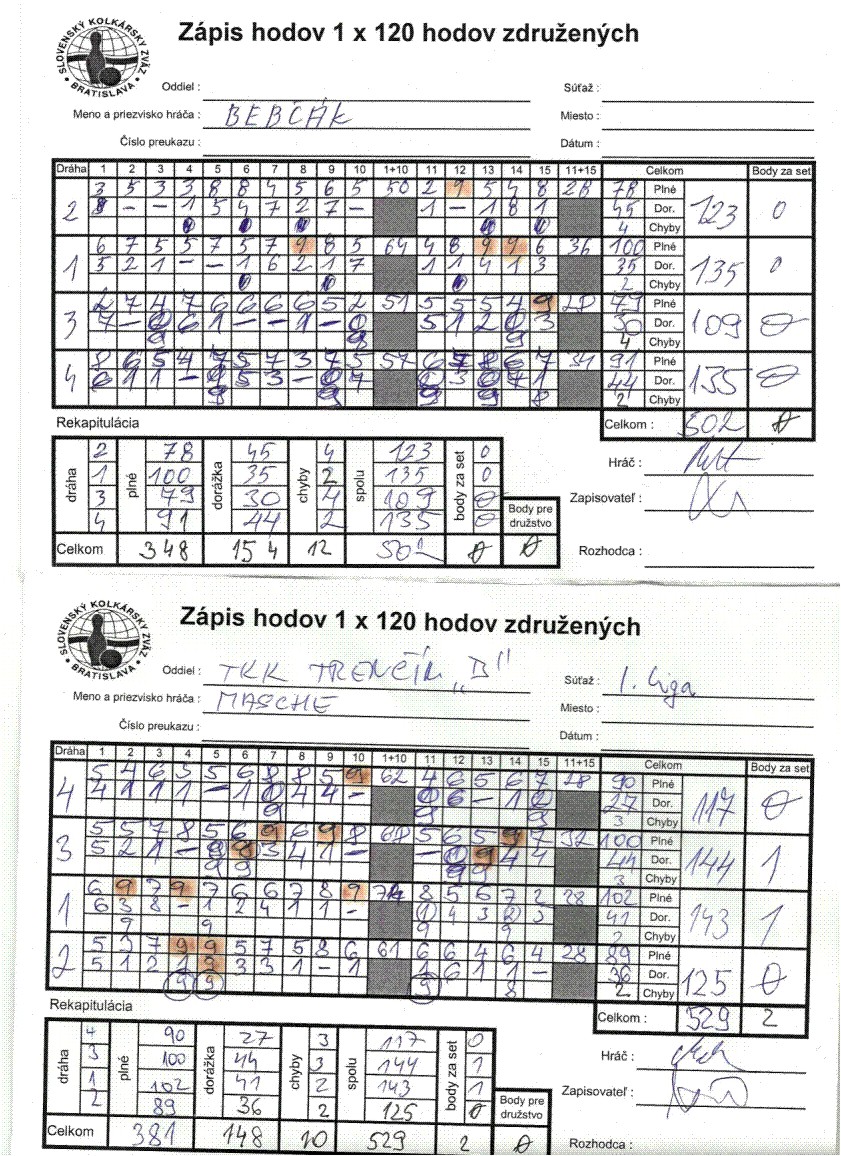 SLOVENSKÝ KOLKÁRSKY ZVÄZ
• BRATISLAVA •
Zápis hodov 1 x 120 hodov združených
Oddiel :
Súťaž :
Meno a priezvisko hráča : BEBČÁK
Miesto :
Číslo preukazu :
Dátum :
Dráha 1 2 3 4 5 6 7 8 9 10 1+10 11 12 13 14 15 11+15 Celkom Body za set
2 3 5 3 3 8 8 4 5 6 5 50 2 9 5 4 8 28 78 Plné 123 0
– – 1 5 4 7 2 7 – 1 – 1 8 1 45 Dor.
4 Chyby
1 6 7 5 5 7 5 7 9 8 5 64 4 8 9 9 6 36 100 Plné 135 0
5 2 1 – – 1 6 2 1 7 1 1 4 1 3 35 Dor.
2 Chyby
3 2 7 4 7 6 6 6 6 5 2 51 5 5 5 4 9 28 79 Plné 109 0
7 – 0 6 1 – – 1 – 0 5 1 2 0 3 30 Dor.
9 9 9 4 Chyby
4 8 6 5 4 7 5 7 3 7 5 57 6 7 8 6 7 34 91 Plné 135 0
6 1 1 – 5 3 – 0 7 0 3 0 7 1 44 Dor.
2 Chyby
Celkom : 502 0
Rekapitulácia
dráha plné dorážka chyby spolu body za set
2 78 45 4 123 0
1 100 35 2 135 0
3 79 30 4 109 0
4 91 44 2 135 0
Body pre družstvo
Celkom 348 154 12 502 0 0
Hráč :
Zapisovateľ :
Rozhodca :
SLOVENSKÝ KOLKÁRSKY ZVÄZ
• BRATISLAVA •
Zápis hodov 1 x 120 hodov združených
Oddiel : TKK TRENČÍN „B"
Súťaž : 1. liga
Meno a priezvisko hráča : MASCHE
Miesto :
Číslo preukazu :
Dátum :
Dráha 1 2 3 4 5 6 7 8 9 10 1+10 11 12 13 14 15 11+15 Celkom Body za set
4 5 4 6 3 5 6 8 8 5 9 62 4 6 5 6 7 28 90 Plné 117 0
4 1 1 1 – 1 0 4 4 – 0 6 – 1 0 27 Dor.
9 9 9 3 Chyby
3 5 5 7 8 5 6 9 6 9 8 68 5 6 5 9 7 32 100 Plné 144 1
5 2 1 – 3 4 1 – – 0 9 4 4 44 Dor.
9 9 3 Chyby
1 6 9 7 9 7 6 6 7 8 9 74 8 5 6 7 2 28 102 Plné 143 1
6 3 8 – 1 2 4 1 1 – 1 4 3 2 3 41 Dor.
9 9 9 9 2 Chyby
2 5 3 7 9 9 5 7 5 8 6 61 6 6 4 6 4 28 89 Plné 125 0
5 1 2 1 9 3 3 1 – 1 6 1 1 – 36 Dor.
9 9 9 8 2 Chyby
Celkom : 529 2
Rekapitulácia
dráha plné dorážka chyby spolu body za set
4 90 27 3 117 0
3 100 44 3 144 1
1 102 41 2 143 1
2 89 36 2 125 0
Body pre družstvo
Celkom 381 148 10 529 2 0
Hráč :
Zapisovateľ :
Rozhodca :